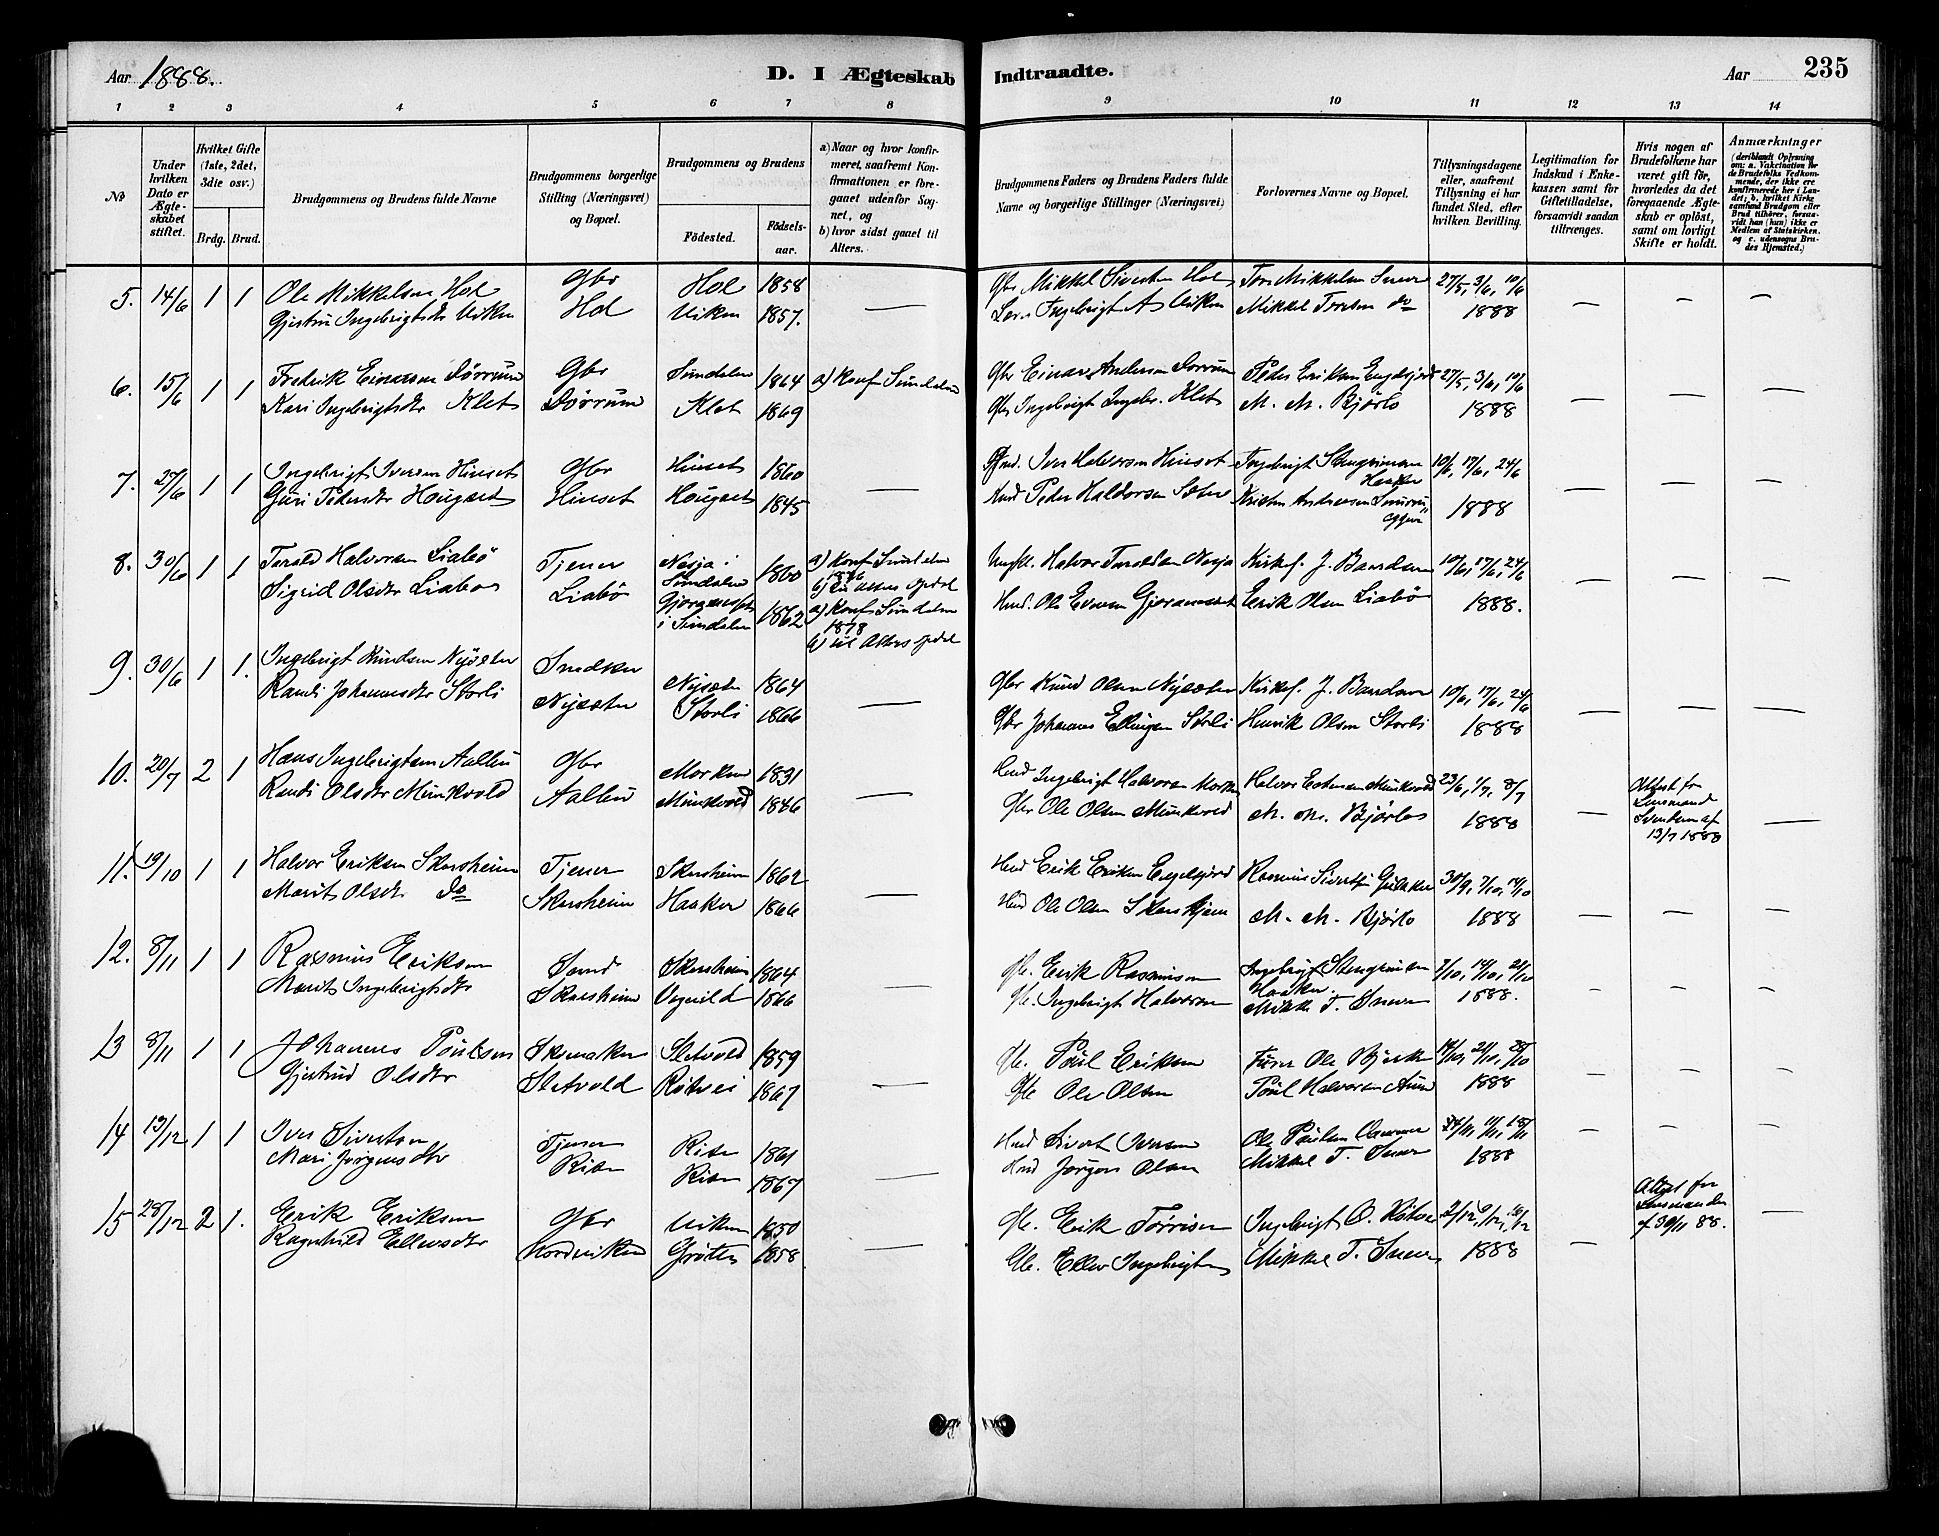 Aar 1888.
D. I Ægteskab
Indtraadte.
Aar
235
1 2 3 4 5 6 7 8
9 10 11 12 13 14
No
Under hvilken Dato er Ægteskabet stiftet.
Hvilket Gifte (1ste, 2det, 3die osv.)
Brdg. Brud.
Brudgommens og Brudens fulde Navne
Brudgommens borgerlige Stilling (Næringsvei) og Bopæl.
Brudgommens og Brudens
Födested.
Födsels-aar.
a) Naar og hvor konfirmeret, saafremt Konfirmationen er foregaaet udenfor Sognet, og
b) hvor sidst gaaet til Alters.
Brudgommens Faders og Brudens Faders fulde Navne og borgerlige Stillinger (Næringsvei)
Forlovernes Navne og Bopæl.
Tillysningsdagene eller, saafremt Tillysning ei har fundet Sted, efter hvilken Bevilling.
Legitimation for Indskud i Enkekassen samt for Giftetilladelse, forsaavidt saadan tiltrænges.
Hvis nogen af Brudefolkene har været gift før, hvorledes da det foregaaende Ægteskab er oplöst, samt om lovligt Skifte er holdt.
Anmærkninger (deriblandt Oplysning om: a. Vakcination for de Brudefolks Vedkommende, der ikke ere konfirmerede her i Landet; b. hvilket Kirkesamfund Brudgom eller Brud tilhører, forsaavidt han (hun) ikke er Medlem af Statskirken. og c. udensogns Brudes Hjemsted.)
5. 14/6 1 1 Ole Mikkelsen Hol Gbr Hol 1858 Gbr Mikkel Sivertsen Hol Tore Mikkelsen Snever 27/5, 3/6, 10/6
Gjertru Ingebrigtsdtr Viken Hol Viken 1857. Ingebrigt A Viken Mikkel Toresen do 1888
6. 15/6 1 1 Fredrik Einarsen Dörrum Gbr Sundalen 1864 a) Konf Sundalen Gbr Einar Andersen Dorrum Peder Eriksen Engelsjord 27/5, 3/6, 10/6
Kari Ingebrigtsdtr Klet Dörrum Klet 1869 Gbr Ingebrigt Ingebr. Klet M. M. Bjørlo 1888
7. 27/6 1 1 Ingebrigt Iversen Hinset Gbr Hinset 1860 Iver Halvorsen Hinset Ingebrigt Stengrimsen Haaker 10/6, 17/6, 24/6
Guri Pedersdtr Hougset Hinset Hougset 1845 Peder Haldorsen Sæter Kristen Andersen 1888
8. 30/6 1 1 Torald Halvorsen Liabö Tjener Nesja i Sundalen 1860 a) Konf Sundalen 1876 b) til Alters Opdal Halvor Toraldsen Nesja Kirkes. J. Bardsen 10/6, 17/6, 24/6
Sigrid Olsdtr Liabö Liabö Gjøraneset i Sundalen 1862 a) Konf Sundalen 1878 b) til Alters Opdal Hmd. Ole Evensen Gjøraneset Erik Olsen Liabö 1888.
9. 30/6 1 1. Ingebrigt Knudsen Nysæter Snedker Nysæter 1864 Gbr Knud Olsen Nysæter Kirkes. J. Bardsen 10/6, 17/6, 24/6
Randi Johannesdtr Storli Nysæter Storli 1866 Gbr Johannes Ellingsen Storli Henrik Olsen Storli 1888
10. 20/7 2 1 Hans Ingebrigtsen Aalbu Gbr Morken 1831 Hmd Ingebrigt Halvorsen Morken Halvor Estensen Munkvold 23/6, 1/7, 8/7 Attest fr Lensmand Svendsen af 13/7 1888
Randi Olsdtr Munkvold Aalbu Munkvold 1846 Gbr Ole Olsen Munkvold M. M. Bjørlo 1888
11. 19/10 1 1 Halvor Eriksen Skarsheim Tjener Skarsheim 1862 Hmd Erik Eriksen Engelsjord Rasmus Sivertsen 30/9, 7/10, 14/10
Marit Olsdtr do Skarsheim Haaker 1866 Hmd Ole Olsen Skarsheim M. M. Bjørlo 1888
12. 8/11 1 1 Rasmus Eriksen Skarsheim 1864 Gbr. Erik Rasmusen Ingebrigt Stengrimsen Haaker. 7/10, 14/10, 21/10
Marit Ingebrigtsdtr Skarsheim Vognild 1866 Gbr. Ingebrigt Halvorsen Mikkel T. Snever 1888.
13 8/11 1 1 Johannes Poulsen Skomaker Sletvold 1859 Gbr. Poul Eriksen Ole Bjørk 14/10, 21/10, 28/10
Gjertrud Olsdtr Sletvold Rötvei 1867 Gbr Ole Olsen Poul Halvorsen Aune 1888
14 13/12 1 1 Iver Sivertsen Tjener Rise 1861 Hmd Sivert Iversen Ole Poulsen 11/11, 18/11
Mari Jørgensdtr Rise Rise 1867 Hmd Jørgen Olsen Mikkel T. Snever 1888
15 28/12 2 1. Erik Eriksen Gbr Viken 1850 Gbr. Erik Torrisen Ingebrigt O. 2/12, 9/12, 16/12 Attest fra Lensmanden af 30/11 88.
Ragnhild Ellevsdtr Nordviken Gröten 1858 Gbr. Ellev Ingebrigtsen Mikkel T. Snever 1888